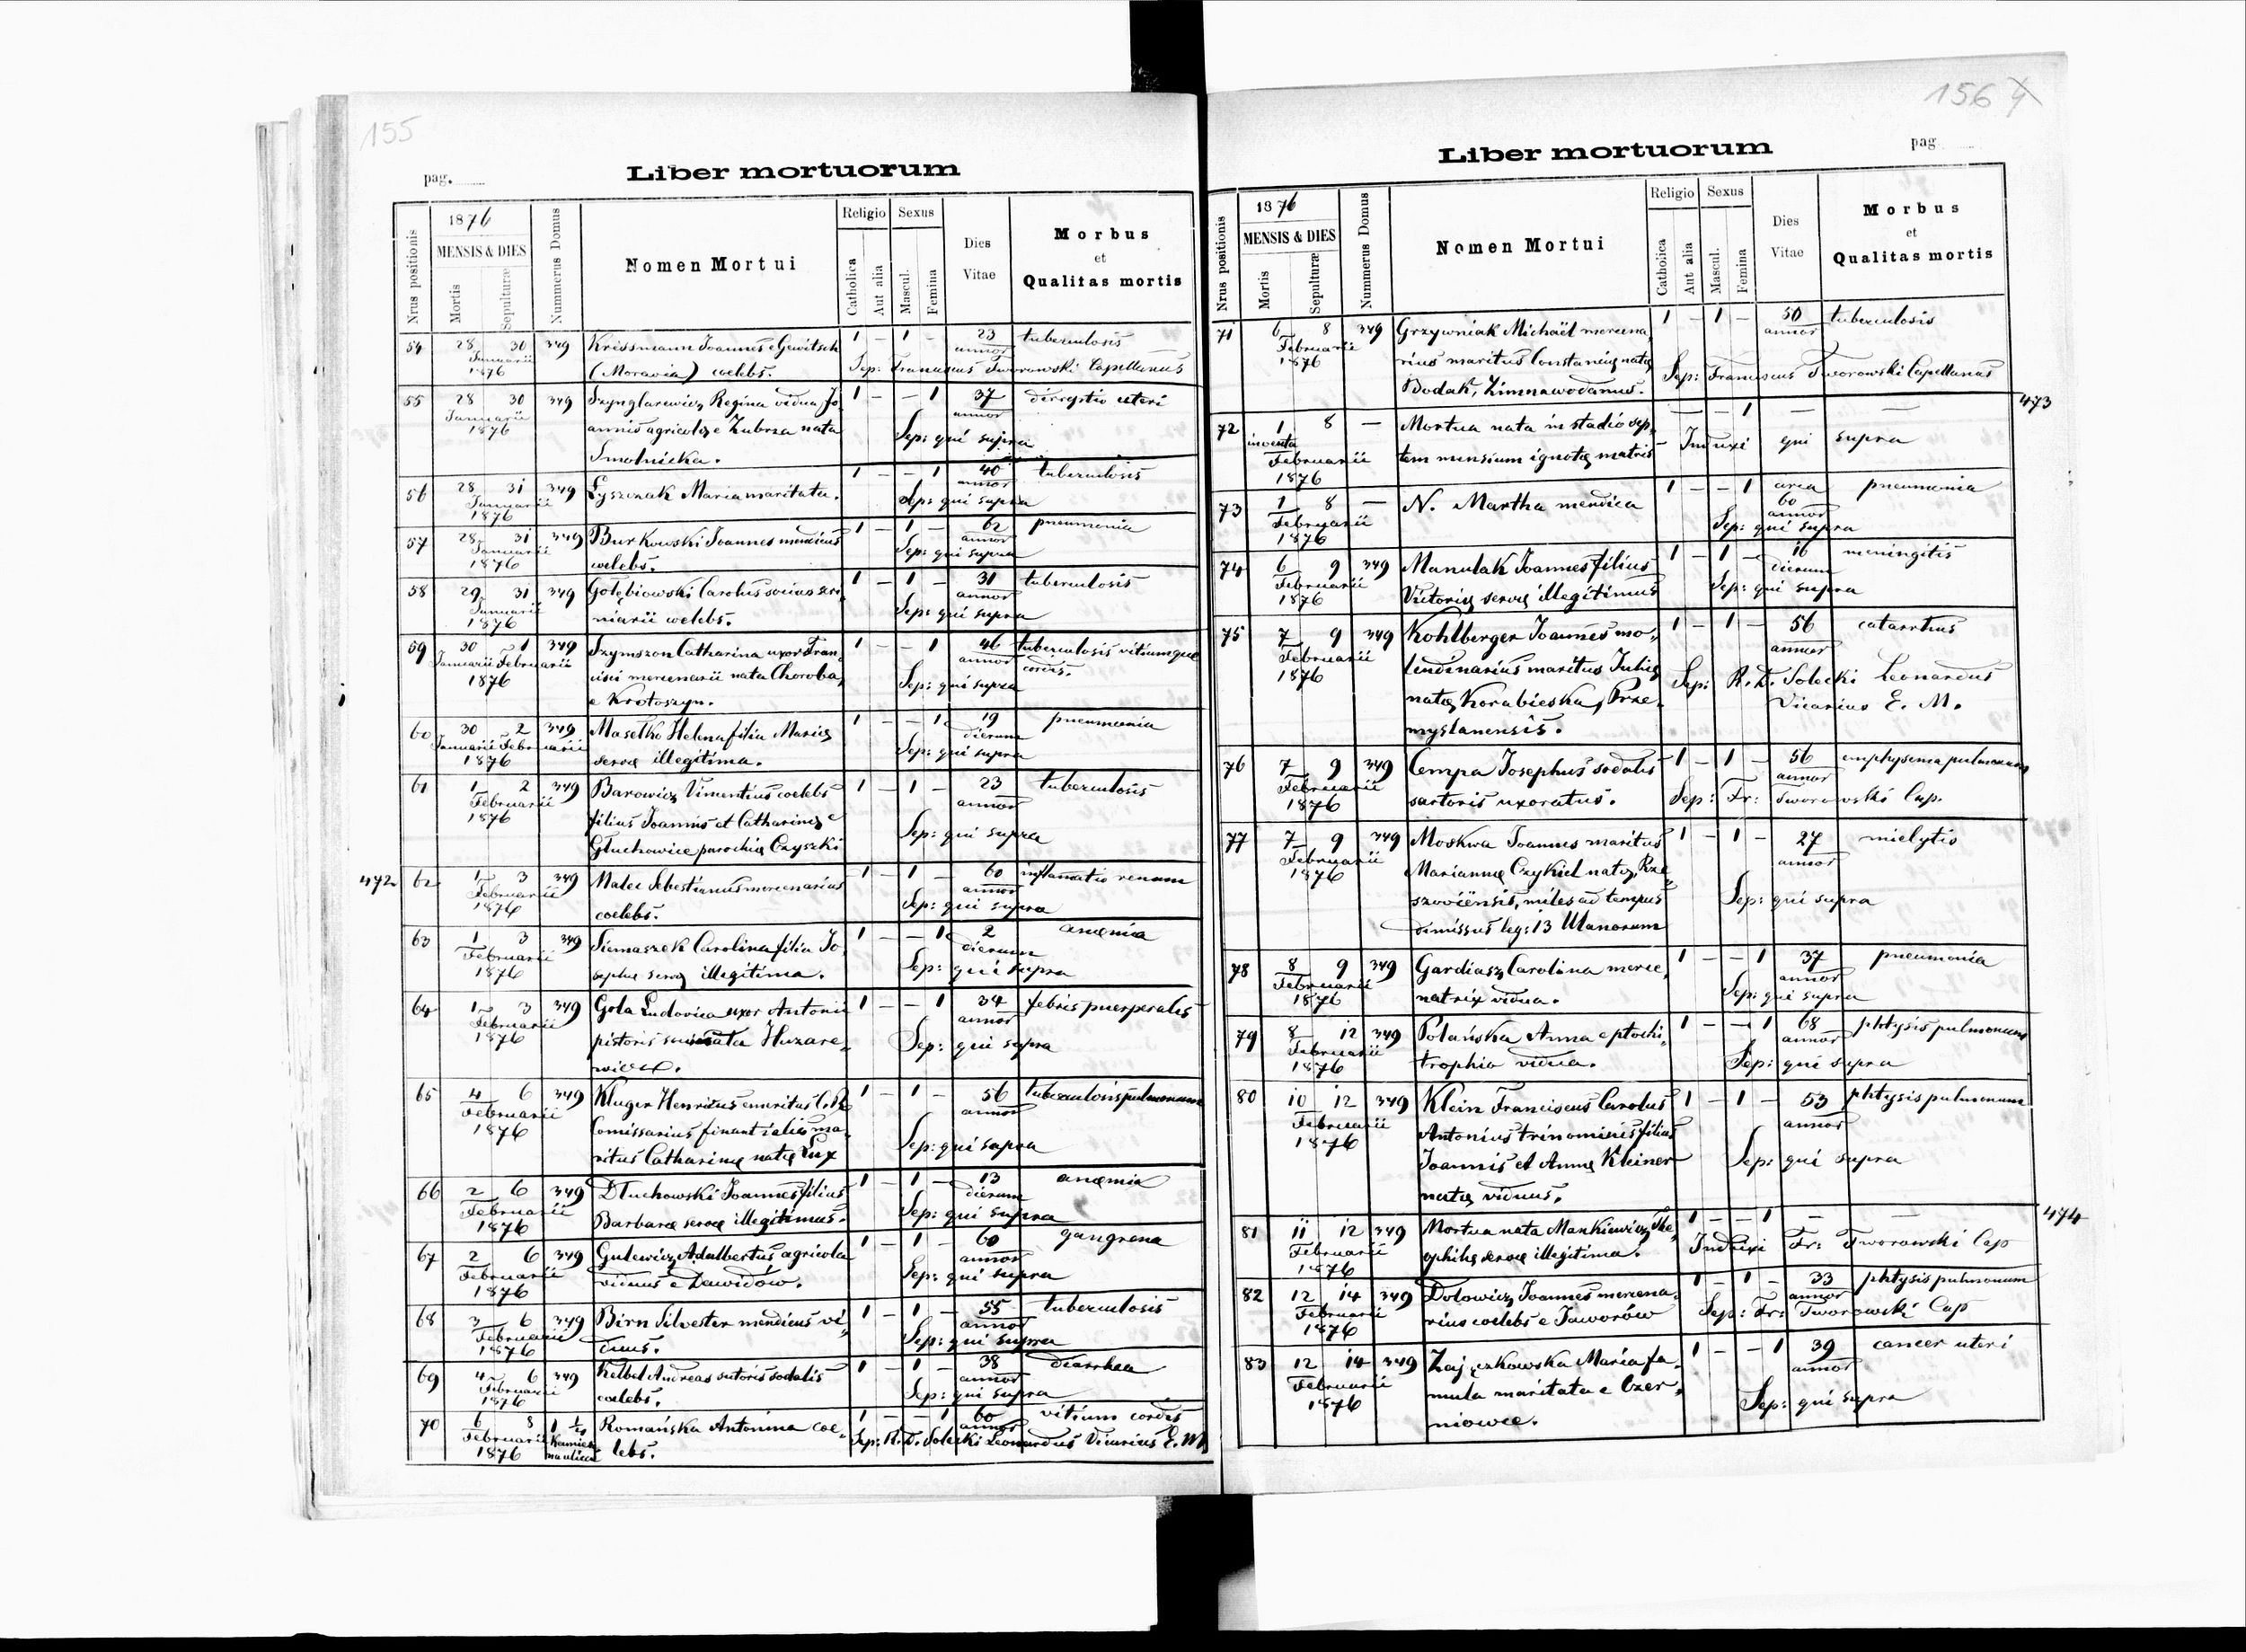 155
pag.
Liber mortuorum
Nrus positionis
1876
MENSIS & DIES
Mortis
Sepulturæ
Nummerus Domus
Nomen Mortui
Religio
Catholica
Aut alia
Sexus
Mascul.
Femina
Dies
Vitae
Morbus
et
Qualitas mortis
54 28 30 349 Krissmann Joannes e Gewitsch 1 – 1 – 23 tuberculosis
Januarii annor
1876 (Moravia) coelebs. Sep: Franciscus Tworowski Capellanus
55 28 30 349 Szynglarewicz Regina vidua Jo 1 – – 1 37 diruptio uteri
Januarii annis agricolę e Zubrza nata annor
1876 Smolnicka. Sep: qui supra
56 28 31 349 Łyszczak Maria maritata. 1 – – 1 40 tuberculosis
Januarii annor
1876 Sep: qui supra
57 28 31 349 Burkowski Joannes mendicus 1 – 1 – 62 pneumonia
Januarii annor
1876 coelebs. Sep: qui supra
58 29 31 349 Gołębiowski Carolus socius seri 1 – 1 – 31 tuberculosis
Januarii annor
1876 niarii coelebs. Sep: qui supra
59 30 1 349 Szymszon Catharina uxor Fran 1 – – 1 46 tuberculosis vitiumque
Januarii Februarii cisci mercenarii nata Choroba, annor cordis.
1876 e Krotoszyn. Sep: qui supra
60 30 2 349 Masełko Helena filia Marię 1 – – 1 19 pneumonia
Januarii Februarii dierum
1876 servę illegitima. Sep: qui supra
61 1 2 349 Barowicz Vincentius coelebs 1 – 1 – 23 tuberculosis
Februarii filius Joannis et Catharinę e annor
1876 Głuchowice parochię Czyszki Sep: qui supra
472 62 1 3 349 Malec Sebestianus mercenarius 1 – 1 – 60 inflamatio renum
Februarii annor
1876 coelebs. Sep: qui supra
63 1 3 349 Siemaszek Carolina filia Jo 1 – – 1 2 anæmia
Februarii dierum
1876 sephę servę illegitima. Sep: qui supra
64 1 3 349 Gola Ludovica uxor Antonii 1 – – 1 34 febris puerperalis
Februarii pistoris annor
1876 Huzare wicz. Sep: qui supra
65 4 6 349 Kluger Henricus emeritus 1 – 1 – 56 tuberculosis pulmonum
Februarii Comissarius finantialis ma annor
1876 ritus Catharinę natę Lux Sep: qui supra
66 2 6 349 Dłuchowski Joannes filius 1 – 1 – 13 anæmia
Februarii dierum
1876 Barbarę servę illegitimus. Sep: qui supra
67 2 6 349 Gulewicz Adalbertus agricola 1 – 1 – 60 gangrena
Februarii annor
1876 viduus e Dawidów. Sep: qui supra
68 3 6 349 Birn Silvester mendicus vi 1 – 1 – 55 tuberculosis
Februarii annor
1876 duus. Sep: qui supra
69 4 6 349 Kelbel Andreas sutoris sodalis 1 – 1 – 38 diarrhea
Februarii annor
1876 coelebs. Sep: qui supra
70 6 8 Romańska Antonina coe 1 – – 1 60 vitium cordis
Februarii annor
1876 lebs. Sep: R. D. Solecki Leonardus Vicarius E. M.
156
Liber mortuorum
pag
Nrus positionis
1876
MENSIS & DIES
Mortis
Sepulturæ
Nummerus Domus
Nomen Mortui
Religio
Catholica
Aut alia
Sexus
Mascul.
Femina
Dies
Vitae
Morbus
et
Qualitas mortis
71 6 8 349 Grzywniak Michaël mercena 1 – 1 – 50 tuberculosis
Februarii rius maritus Constancię natę annor
1876 Bodak, Zimnawodanus. Sep: Franciscus Tworowski Capellanus
473
72 1 8 – Mortua nata in stadio sep – – 1 – –
inventa
Februarii tem mensium ignotę matris – Induxi qui supra
1876
73 1 8 – N. Martha mendica 1 – – 1 circa 60 pneumonia
Februarii annor
1876 Sep: qui supra
74 6 9 349 Manulak Joannes filius 1 – 1 – 16 meningitis
Februarii dierum
1876 Victorię servę illegitimus Sep: qui supra
75 7 9 349 Kohlberger Joannes mo 1 – 1 – 56 catarrhus
Februarii lendinarius maritus Julię annor
1876 natę Korabieska, Prze Sep: R. D. Solecki Leonardus
myslanensis. Vicarius E. M.
76 7 9 349 Cempa Josephus sodalis 1 – 1 – 56 emphysema pulmonum
Februarii annor
1876 sartoris uxoratus. Sep: Fr: Tworowski Cap.
77 7 9 349 Moskwa Joannes maritus 1 – 1 – 27 mielytis
Februarii Mariannę Czykiel natę, Rze annor
1876 szoviensis, miles ad tempus Sep: qui supra
dimissus leg: 13 Ulanorum
78 8 9 349 Gardiasz Carolina merce 1 – – 1 37 pneumonia
Februarii annor
1876 natrix vidua. Sep: qui supra
79 8 12 349 Polańska Anna e ptochi 1 – – 1 68 phtysis pulmonum
Februarii annor
1876 trophio vidua. Sep: qui supra
80 10 12 349 Klein Franciscus Carolus 1 – 1 – 53 phtysis pulmonum
Februarii Antonius trinominis filius annor
1876 Joannis et Annę Kleiner Sep: qui supra
natę viduus.
474
81 11 12 349 Mortua nata Mankiewicz The 1 – – 1 – –
Februarii
1876 ophilę servę illegitima. Induxi Fr: Tworowski Cap
82 12 14 349 Dolowicz Joannes mercena 1 – 1 – 33 phtysis pulmonum
Februarii annor
1876 rius coelebs e Jaworów Sep: Fr: Tworowski Cap
83 12 14 349 Zajączkowska Maria fa 1 – – 1 39 cancer uteri
Februarii mula maritata e Czer annor
1876 niowce. Sep: qui supra